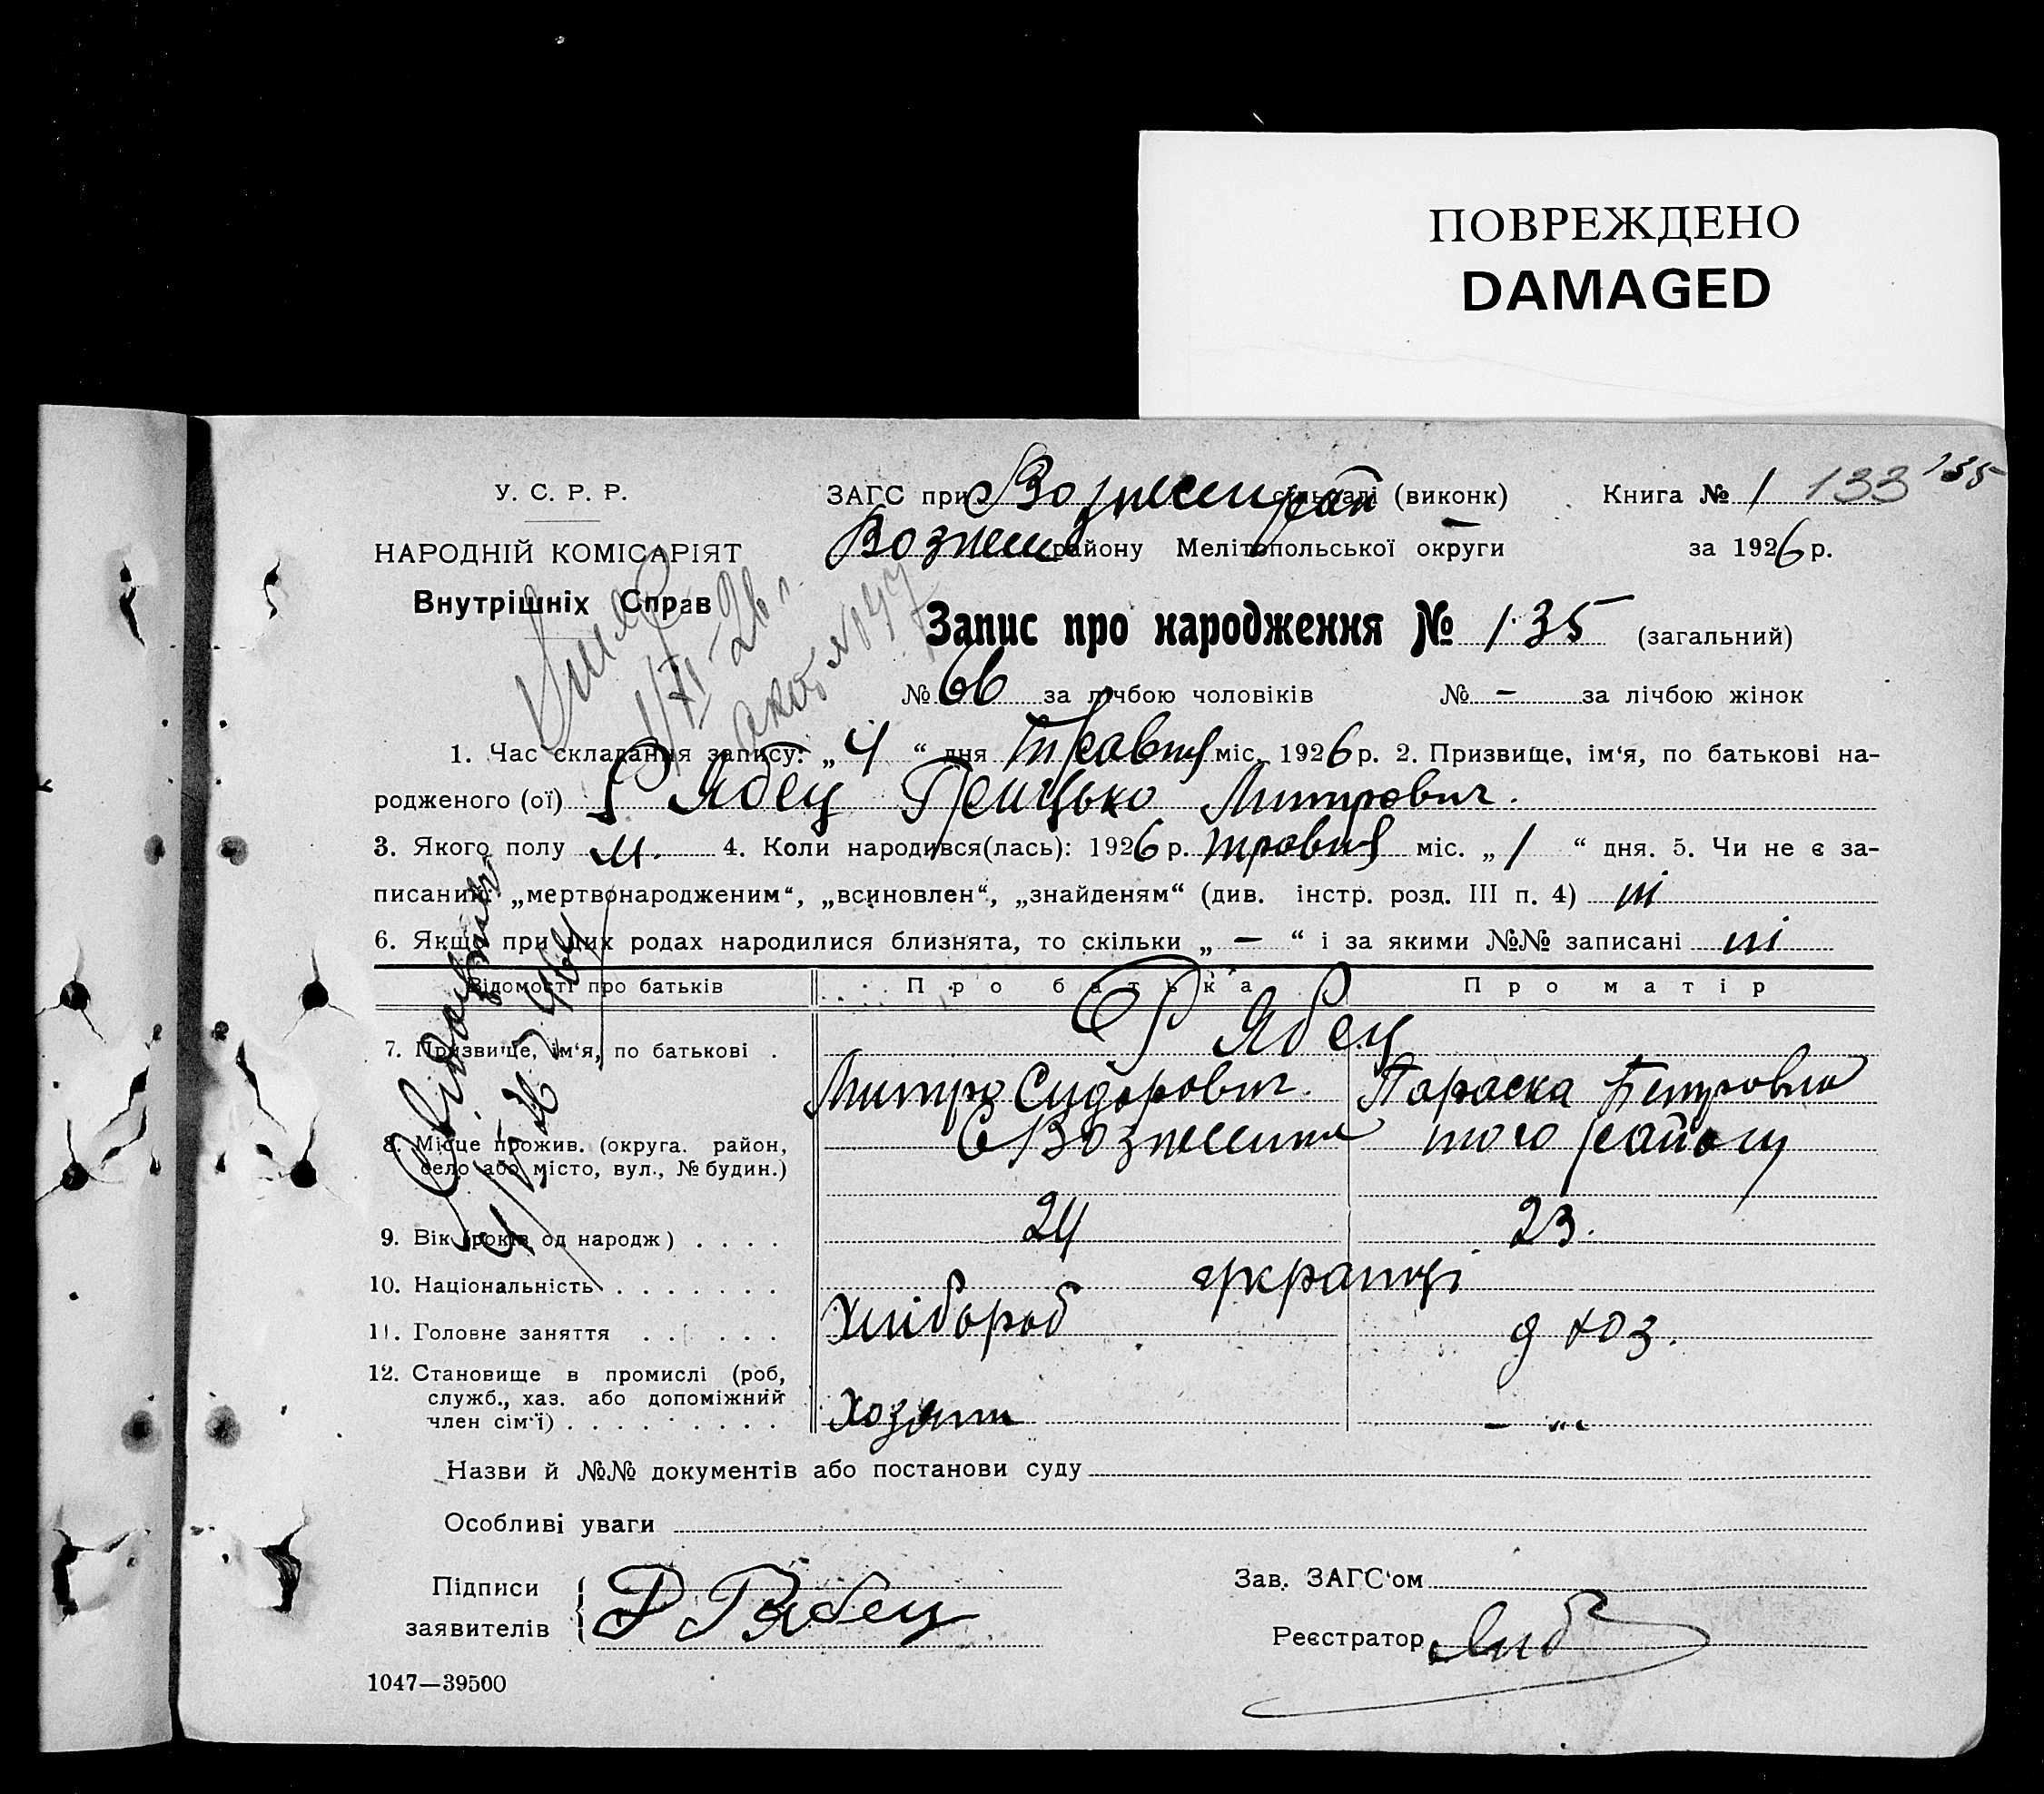 ПОВРЕЖДЕНО
DAMAGED
У. С. Р. Р.
НАРОДНІЙ КОМІСАРІЯТ
Внутрішніх Справ
ЗАГС при сільраді (виконк)
Книга № 1 133 135
Вознес району Мелітопольської округи
за 1926 р.
Запис про народження № 135 (загальний)
№ 66 за лічбою чоловіків № – за лічбою жінок
Умер
1/VI–26 г.
акт №147
1. Час складання запису: „ 4 “ дня травня міс. 1926 р. 2. Призвище, ім‘я, по батькові на-
родженого (ої) Рябец Грицько Митрович.
3. Якого полу м. 4. Коли народився(лась): 1926 р. травня міс. „ 1 “ дня. 5. Чи не є за-
писаний: „мертвонародженим“, „всиновлен“, „знайденям“ (див. інстр. розд. III п. 4) ні
6. Якщо при цих родах народилися близнята, то скільки „ – “ і за якими №№ записані ні
Відомості про батьків Про батька Про матір
7. Призвище, ім‘я, по батькові . Рябец
Митро Сидорович. Параска Петровна
8. Місце прожив. (округа. район, село або місто, вул., № будин.) С Вознесенка того району
9. Вік (років од народж) . . . . 24 23.
10. Національність . . . . . . . українці
11. Головне заняття . . . . . Хлібороб д хоз.
12. Становище в промислі (роб, служб., хаз. або допоміжний член сім‘ї) . . . . . . . . Хозяин – „
Назви й №№ документів або постанови суду
Особливі уваги
Підписи
заявителів
Д Рябец
Зав. ЗАГС‘ом
Реєстратор
1047—39500